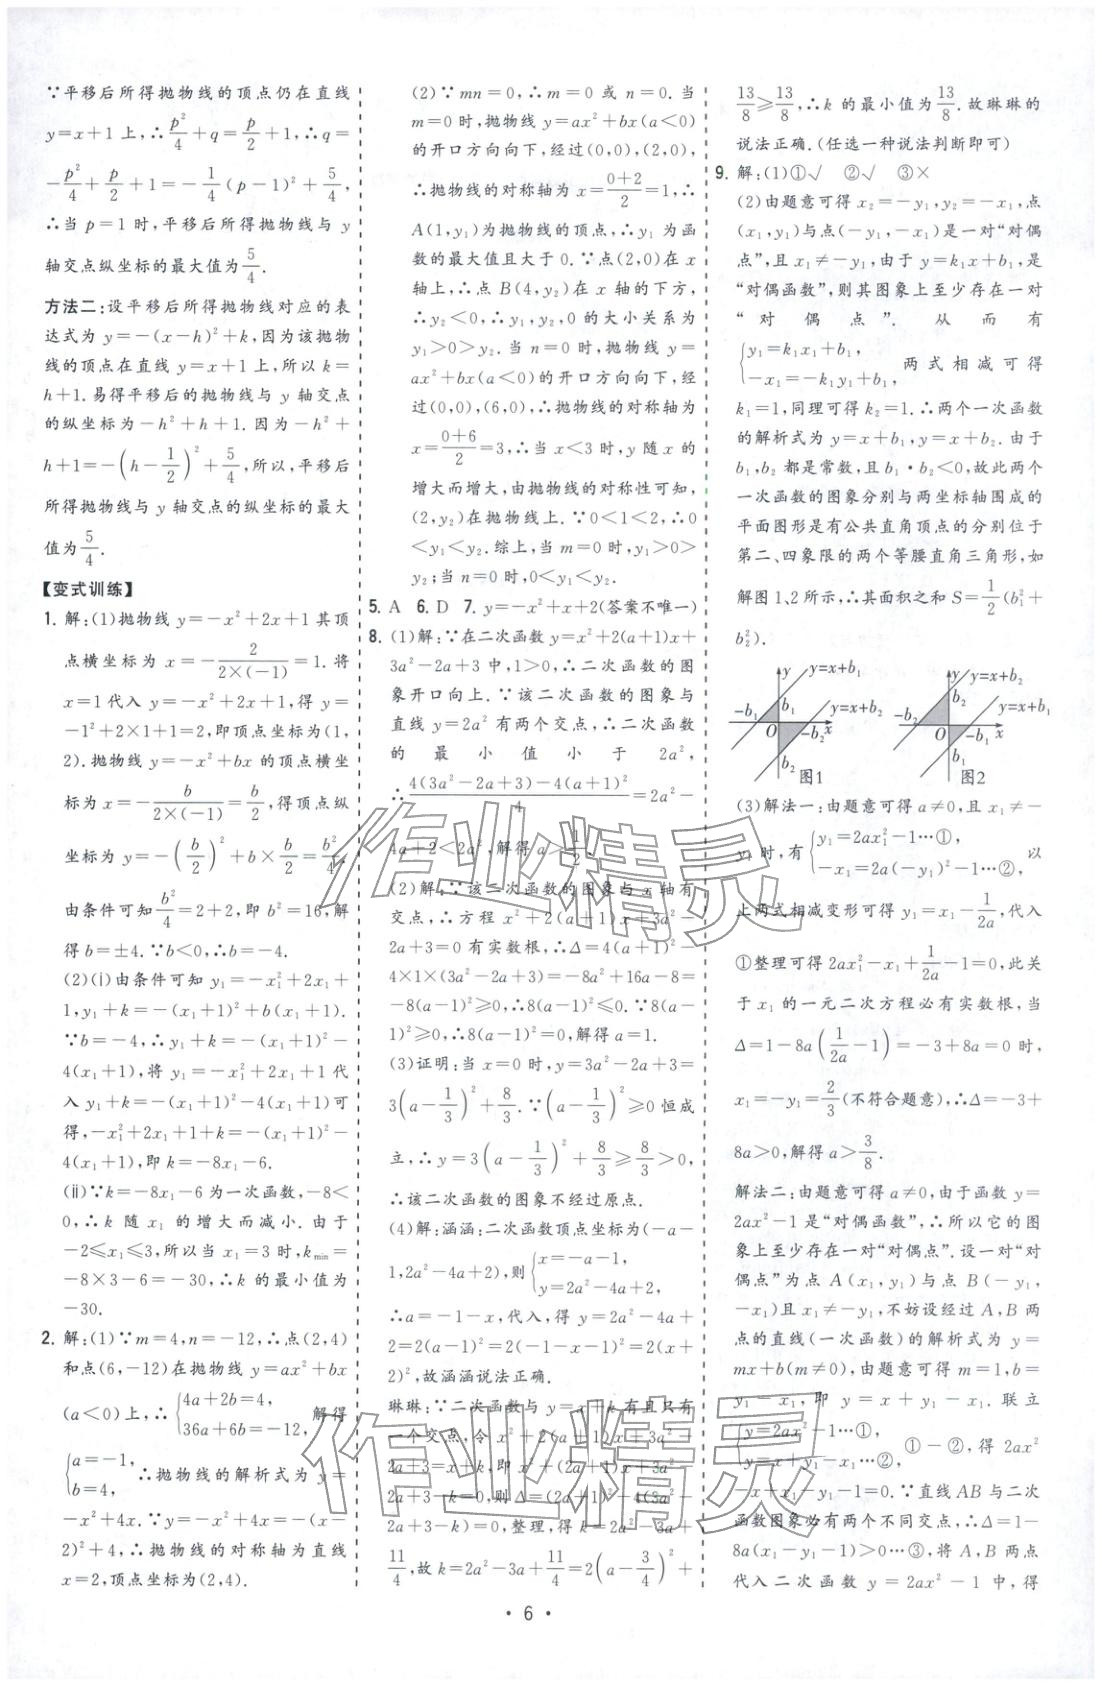 ∵平移后所得抛物线的顶点仍在直线
y=x+1 上,∴p²/4+q=p/2+1,∴q=
-p²/4+p/2+1=-1/4(p-1)²+5/4,
∴当 p=1 时,平移后所得抛物线与 y
轴交点纵坐标的最大值为5/4.
方法二:设平移后所得抛物线对应的表
达式为 y=-(x-h)²+k,因为该抛物
线的顶点在直线 y=x+1 上,所以 k=
h+1.易得平移后的抛物线与 y 轴交点
的纵坐标为-h²+h+1.因为-h²+
h+1=-(h-1/2)²+5/4,所以,平移后
所得抛物线与 y 轴交点的纵坐标的最大
值为5/4.
【变式训练】
1. 解:(1)抛物线 y=-x²+2x+1 其顶
点横坐标为 x=-2/(2×(-1))=1.将
x=1代入 y=-x²+2x+1,得 y=
-1²+2×1+1=2,即顶点坐标为(1,
2).抛物线 y=-x²+bx 的顶点横坐
标为 x=-b/(2×(-1))=b/2,得顶点纵
坐标为 y=-(b/2)²+b×b/2=b²/4,
由条件可知b²/4=2+2,即 b²=16,解
得 b=±4.∵b<0,∴b=-4.
(2)(ⅰ)由条件可知 y₁=-x₁²+2x₁+
1,y₁+k=-(x₁+1)²+b(x₁+1).
∵b=-4,∴y₁+k=-(x₁+1)²-
4(x₁+1),将 y₁=-x₁²+2x₁+1 代
入 y₁+k=-(x₁+1)²-4(x₁+1)可
得,-x₁²+2x₁+1+k=-(x₁+1)²-
4(x₁+1),即 k=-8x₁-6.
(ⅱ)∵k=-8x₁-6 为一次函数,-8<
0,∴k 随 x₁ 的增大而减小.由于
-2≤x₁≤3,所以当 x₁=3 时,kmin=
-8×3-6=-30,∴k 的最小值为
-30.
2. 解:(1)∵m=4,n=-12,∴点(2,4)
和点(6,-12)在抛物线 y=ax²+bx
(a<0)上,∴{4a+2b=4, 36a+6b=-12, 解得
{a=-1, b=4, ∴抛物线的解析式为 y=
-x²+4x.∵y=-x²+4x=-(x-
2)²+4,∴抛物线的对称轴为直线
x=2,顶点坐标为(2,4).
(2)∵mn=0,∴m=0 或 n=0.当
m=0时,抛物线 y=ax²+bx(a<0)
的开口方向向下,经过(0,0),(2,0),
∴抛物线的对称轴为 x=(0+2)/2=1,∴
A(1,y₁)为抛物线的顶点,∴y₁ 为函
数的最大值且大于 0.∵点(2,0)在 x
轴上,∴点 B(4,y₂)在 x 轴的下方,
∴y₂<0,∴y₁,y₂,0 的大小关系为
y₁>0>y₂.当 n=0 时,抛物线 y=
ax²+bx(a<0)的开口方向向下,经
过(0,0),(6,0),∴抛物线的对称轴为
x=(0+6)/2=3,∴当 x<3 时,y 随 x 的
增大而增大,由抛物线的对称性可知,
(2,y₂)在抛物线上.∵0<1<2,∴0
<y₁<y₂.综上,当 m=0 时,y₁>0>
y₂;当 n=0 时,0<y₁<y₂.
5. A 6. D 7. y=-x²+x+2(答案不唯一)
8. (1)解:∵在二次函数 y=x²+2(a+1)x+
3a²-2a+3 中,1>0,∴二次函数的图
象开口向上.∵该二次函数的图象与
直线 y=2a² 有两个交点,∴二次函数
的最小值小于 2a²,
∴(4(3a²-2a+3)-4(a+1)²)/4=2a²-
4a+2<2a²,解得 a>1/2.
(2)解:∵该二次函数的图象与 x 轴有
交点,∴方程 x²+2(a+1)x+3a²-
2a+3=0 有实数根,∴Δ=4(a+1)²-
4×1×(3a²-2a+3)=-8a²+16a-8=
-8(a-1)²≥0,∴8(a-1)²≤0.∵8(a-
1)²≥0,∴8(a-1)²=0,解得 a=1.
(3)证明:当 x=0 时,y=3a²-2a+3=
3(a-1/3)²+8/3.∵(a-1/3)²≥0 恒成
立,∴y=3(a-1/3)²+8/3≥8/3>0,
∴该二次函数的图象不经过原点.
(4)解:涵涵:二次函数顶点坐标为(-a-
1,2a²-4a+2),则{x=-a-1, y=2a²-4a+2,
∴a=-1-x,代入,得 y=2a²-4a+
2=2(a-1)²=2(-1-x-1)²=2(x+
2)²,故涵涵说法正确.
琳琳:∵二次函数与 y=x+k 有且只有
一个交点,令 x²+2(a+1)x+3a²-
2a+3=x+k,即 x²+(2a+1)x+3a²-
2a+3-k=0,则 Δ=(2a+1)²-4(3a²-
2a+3-k)=0,整理,得 k=2a²-3a+
11/4,故 k=2a²-3a+11/4=2(a-3/4)²+
13/8≥13/8,∴k 的最小值为13/8.故琳琳的
说法正确.(任选一种说法判断即可)
9. 解:(1)①√ ②√ ③×
(2)由题意可得 x₂=-y₁,y₂=-x₁,点
(x₁,y₁)与点(-y₁,-x₁)是一对“对偶
点”,且 x₁≠-y₁,由于 y=k₁x+b₁,是
“对偶函数”,则其图象上至少存在一对
“对偶点”.从而有
{y₁=k₁x₁+b₁, -x₁=-k₁y₁+b₁, 两式相减可得
k₁=1,同理可得 k₂=1.∴两个一次函数
的解析式为 y=x+b₁,y=x+b₂.由于
b₁,b₂ 都是常数,且 b₁·b₂<0,故此两个
一次函数的图象分别与两坐标轴围成的
平面图形是有公共直角顶点的分别位于
第二、四象限的两个等腰直角三角形,如
解图1,2所示,∴其面积之和 S=1/2(b₁²+
b₂²).
y y=x+b₁ -b₁ b₁ y=x+b₂ O -b₂ x b₂ 图1
y y=x+b₂ b₂ y=x+b₁ -b₂ O -b₁ x b₁ 图2
(3)解法一:由题意可得 a≠0,且 x₁≠-
y₁ 时,有{y₁=2ax₁²-1…①, -x₁=2a(-y₁)²-1…②, 以
上两式相减变形可得 y₁=x₁-1/2a,代入
①整理可得 2ax₁²-x₁+1/2a-1=0,此关
于 x₁ 的一元二次方程必有实数根,当
Δ=1-8a(1/2a-1)=-3+8a=0 时,
x₁=-y₁=2/3(不符合题意),∴Δ=-3+
8a>0,解得 a>3/8.
解法二:由题意可得 a≠0,由于函数 y=
2ax²-1是“对偶函数”,∴所以它的图
象上至少存在一对“对偶点”.设一对“对
偶点”为点 A(x₁,y₁)与点 B(-y₁,
-x₁)且 x₁≠-y₁,不妨设经过 A,B 两
点的直线(一次函数)的解析式为 y=
mx+b(m≠0),由题意可得 m=1,b=
y₁-x₁,即 y=x+y₁-x₁.联立
{y=2ax²-1…①, y=x+y₁-x₁…②, ①-②,得 2ax²
-x+x₁-y₁-1=0.∵直线AB与二次
函数图象必有两个不同交点,∴Δ=1-
8a(x₁-y₁-1)>0…③,将 A,B 两点
代入二次函数 y=2ax²-1 中,得
作业精灵
作业精灵
·6·